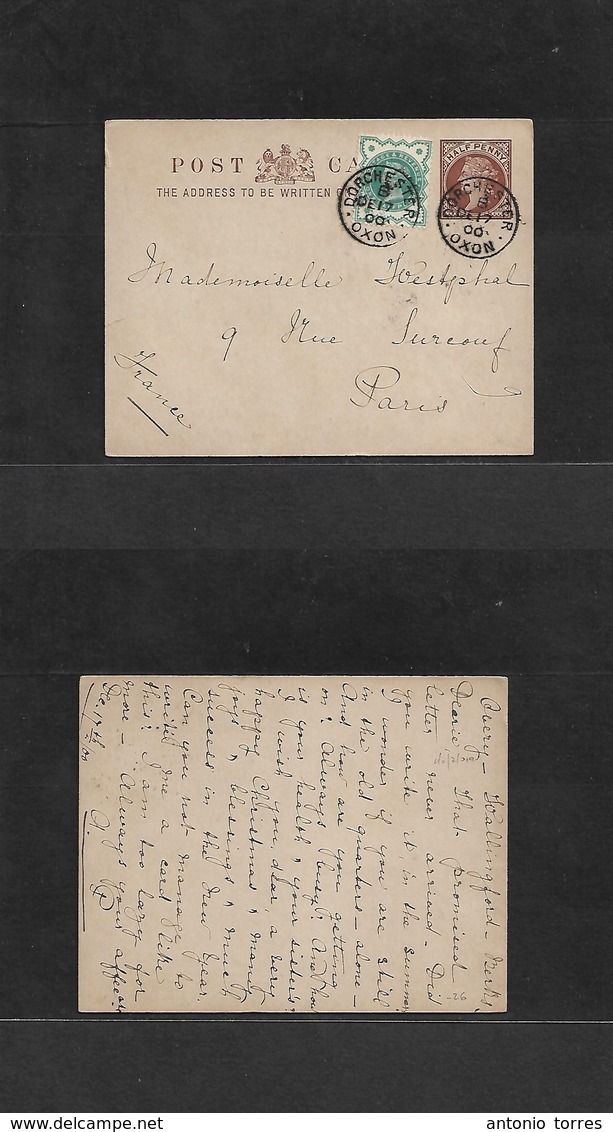 POST CA
THE ADDRESS TO BE WRITTEN O
HALFPENNY
DORCHESTER
B
DE 17
00
OXON
DORCHESTER
B
DE 17
00
OXON
Mademoiselle Westphal
9 Rue Surcouf
Paris
France
Wallingford - Berks
Dearie, That promised
letter never arrived - Did
you write it, in the summer
I wonder if you are still
in the old quarters - alone -
And how are you getting
on? Always busy? And how
is your health, & your sister's?
I wish you, dear, a very
happy Christmas, & many
joys, & blessings, & much
success in the New Year.
Can you not manage to
write me a card like
this? I am too lazy for
more - Always your affec
De. 17th 00
-26
antonio torres